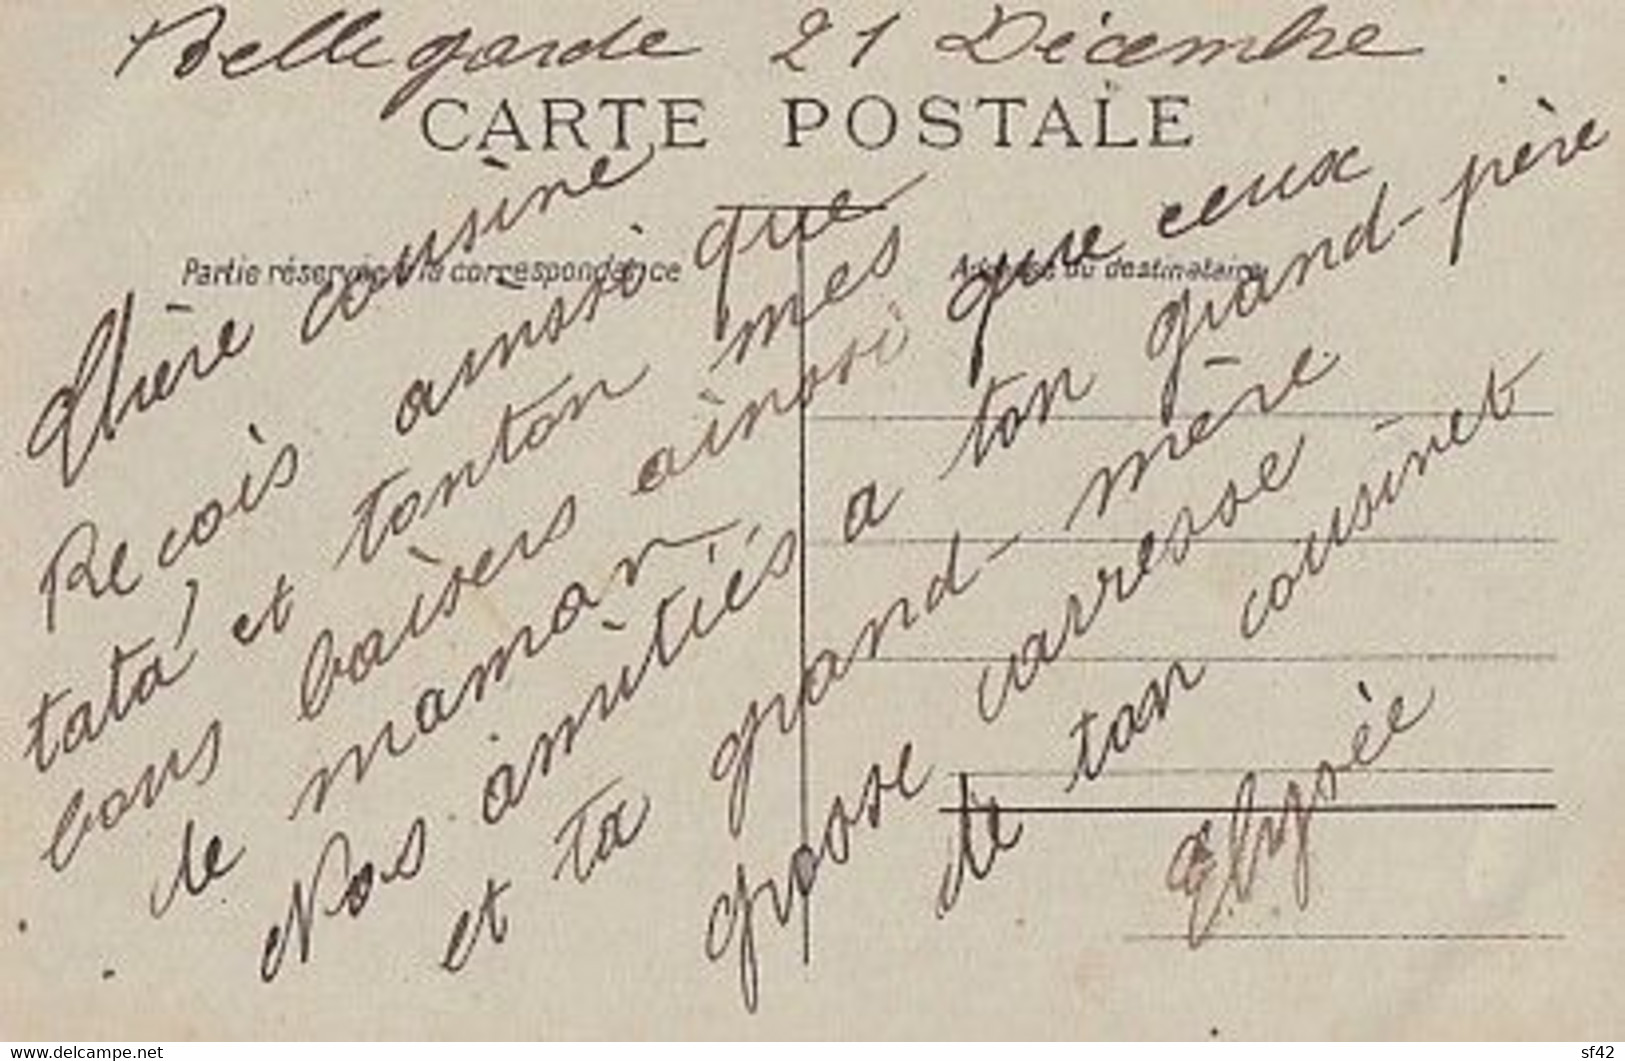 Bellegarde 21 Décembre
CARTE POSTALE
Partie réservée à la correspondance
Adresse du destinataire
Chère cousine
Recois ainsi que
tata et tonton mes
bons baisers ainsi que ceux
de maman
Nos amitiés a ton grand-père
et ta grand-mère
grosse carresse
de ton cousinet
Elysée
www.delcampe.net
sf42